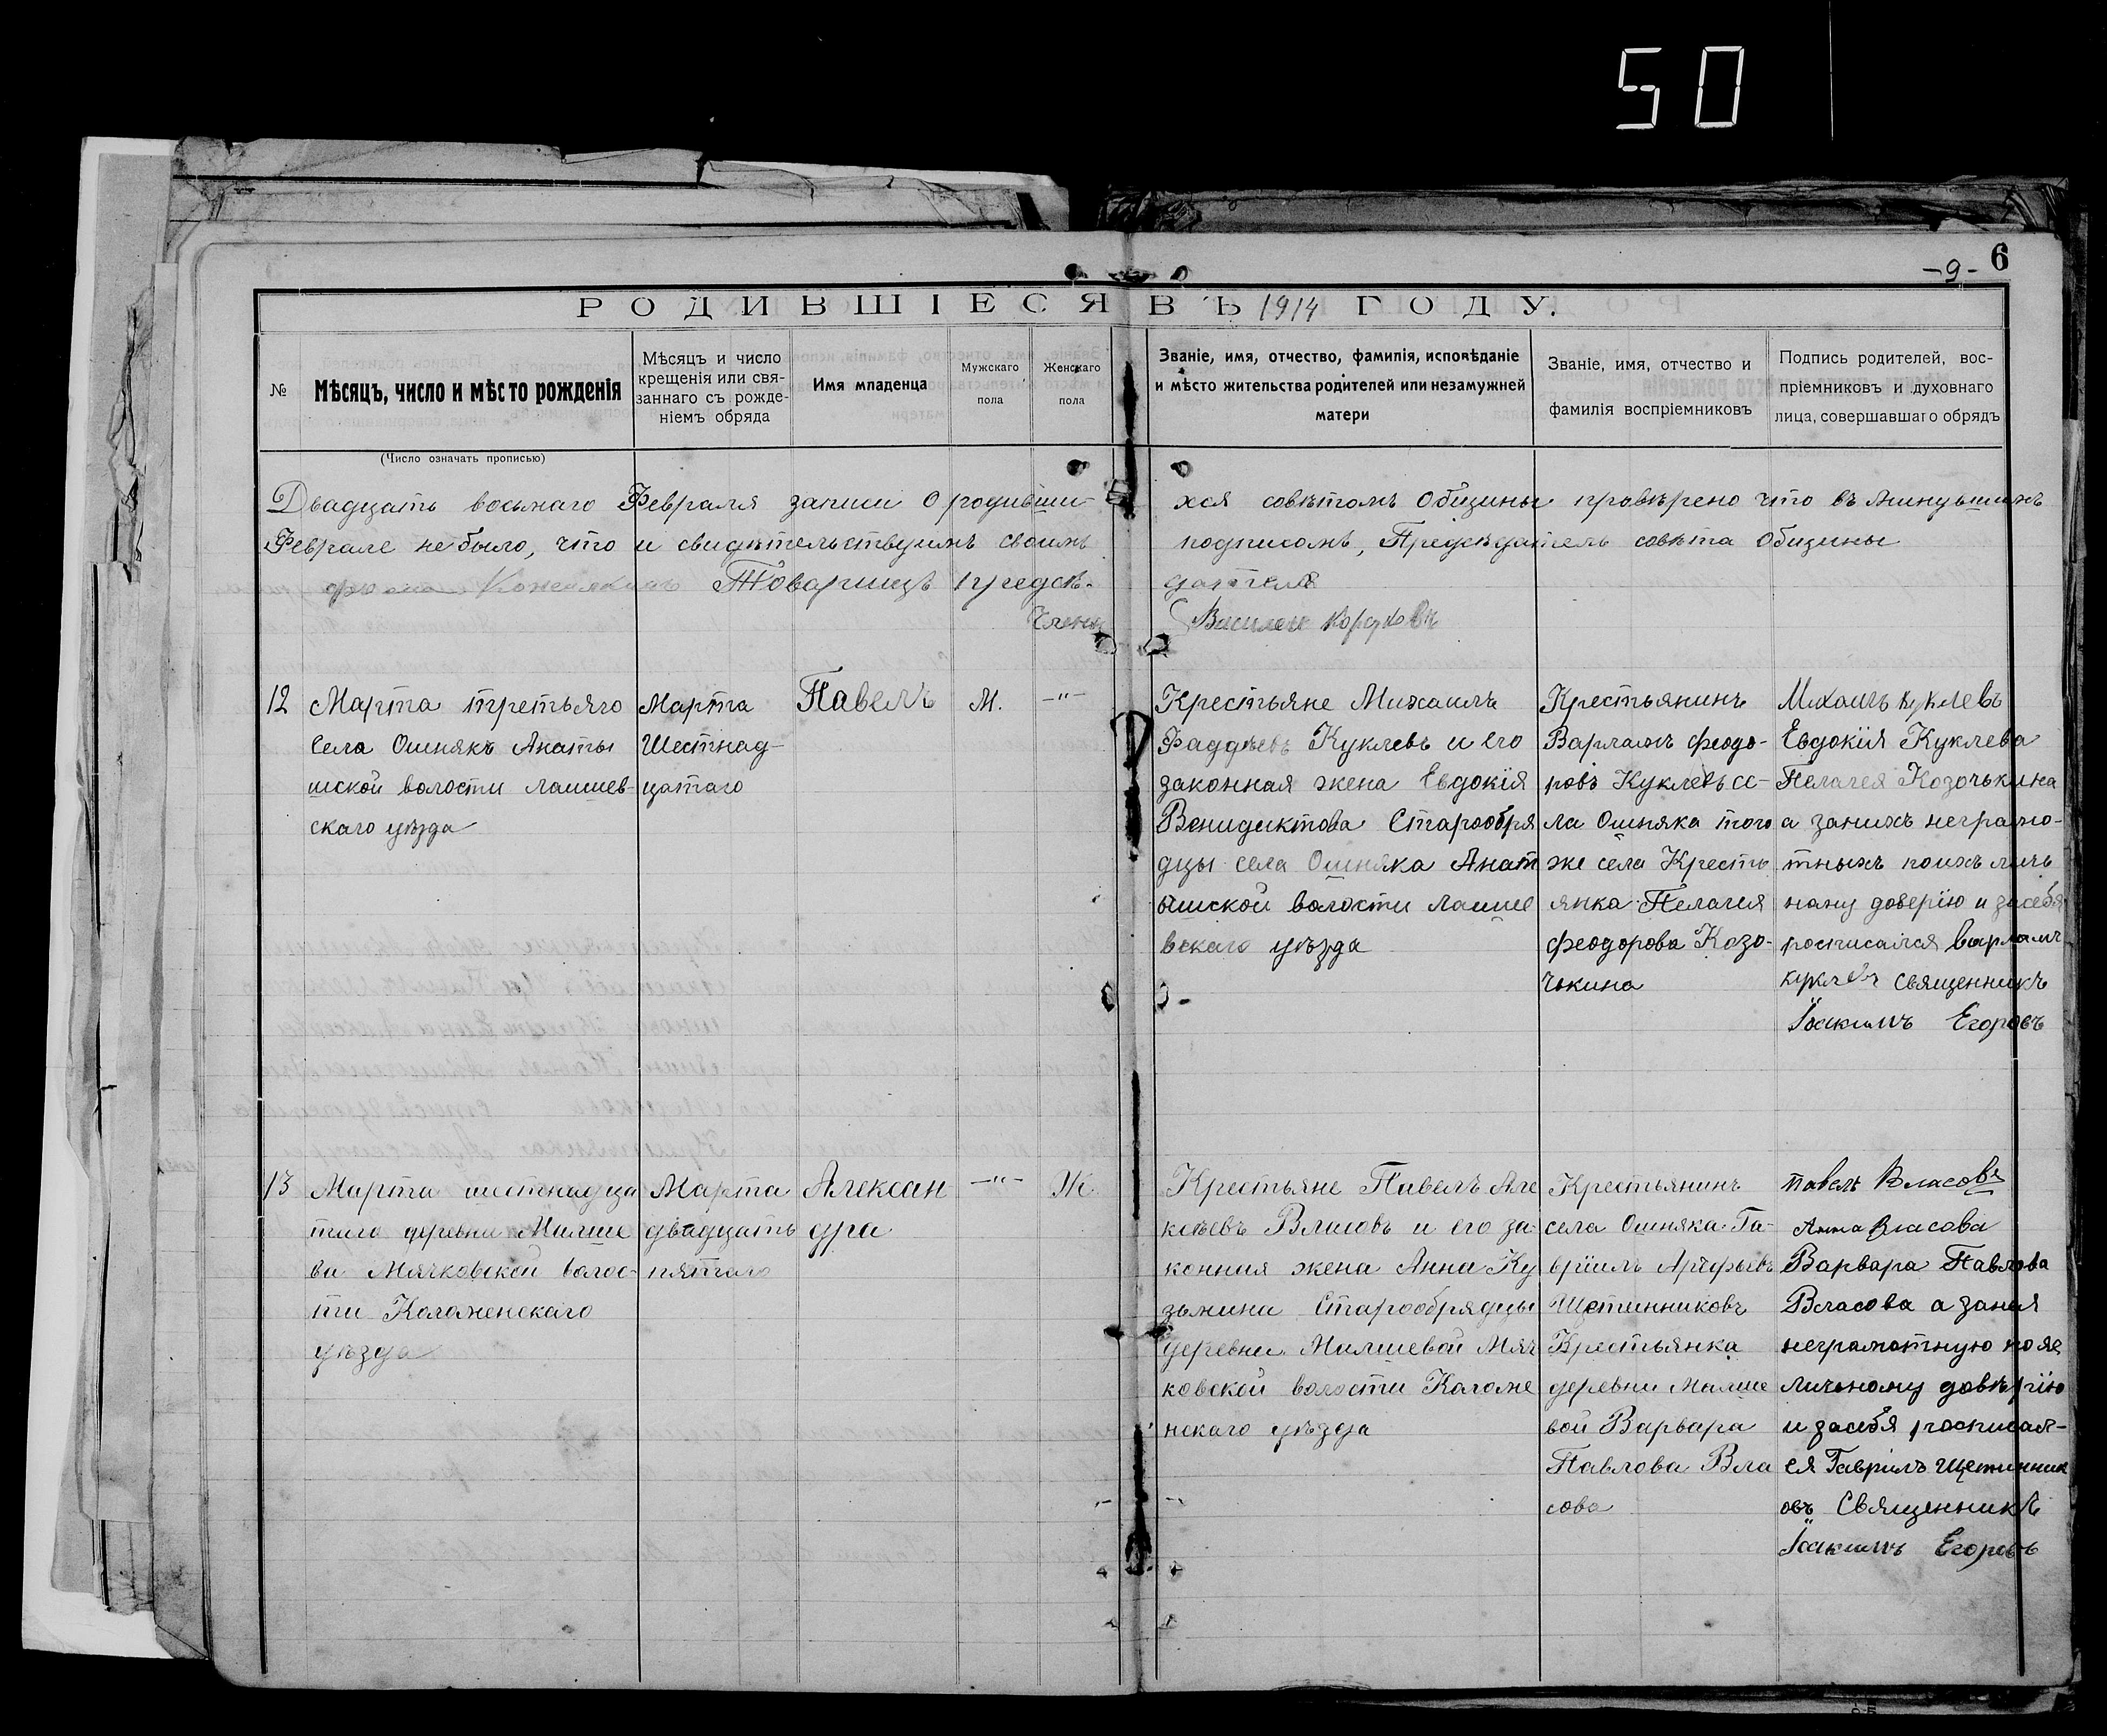 50
-9- 6
РОДИВШІЕСЯ ВЪ 1914 ГОДУ.
№
Мѣсяцъ, число и мѣсто рожденія
(Число означать прописью)
Мѣсяцъ и число
крещенія или свя-
заннаго съ рожде-
ніемъ обряда
Имя младенца
Мужскаго
пола
Женскаго
пола
Званіе, имя, отчество, фамилія, исповѣданіе
и мѣсто жительства родителей или незамужней
матери
Званіе, имя, отчество и
фамилія воспріемниковъ
Подпись родителей, вос-
пріемниковъ и духовнаго
лица, совершавшаго обрядъ
Двадцать восьмаго Февраля записи о родивши- хся совѣтомъ Общины провѣрено что въ минувшимъ
Феврале небыло, что и свидѣтельствуимъ своимъ подписомъ, Предсѣдатель совѣта Общины
Товарищъ предсѣ- дателя
Члены Василей
12
Марта третьяго
села Ошнякъ Анаты
шской волости лаишев-
скаго уѣзда
Марта
Шестнад-
цатаго
Павелъ
М.
-"-
Крестьяне Михаилъ
Фаддѣевъ Куклевъ и его
законная жена Евдокія
Венидиктова Старообря
дцы села Ошняка Анат
ышской волости лаише
вскаго уѣзда
Крестьянинъ
Варламъ феодо-
ровъ Куклевъ се-
ла Ошняка того
же села Кресть
янка Пелагея
феодорова Козо-
чкина
Михаилъ куклевъ
Евдокія Куклева
Пелагея Козочькина
а занихъ неграмо-
тныхъ поихъ личь
нану доверію и засебя
росписался Варламъ
куклевъ священникъ
Іоакимъ Егоровъ
13
Марта шестнадца
таго деревни Малше
ва Мячковской волос-
ти Коложенскаго
уѣзда
Марта
двадцать
пятаго
Алексан
дра
-"-
Ж
Крестьяне Павелъ Але
ксѣевъ Власовъ и его за-
конная жена Анна Ку
зьмина Старообрядцы
деревни Малшевой Мяч
ковской волости Коложе
нскаго уѣзда
Крестьянинъ
села Ошняка Га-
вріилъ
Щетинниковъ
Крестьянка
деревни Малше
вой Варвара
Павлова Вла
сова
Павелъ Власовъ
Анна Власова
Варвара Павлова
Власова а занея
неграмотную по яе
личному довѣрію
и засебя росписал-
ся Гаврилъ Щетинник
овъ Священникъ
Іоакимъ Егоровъ